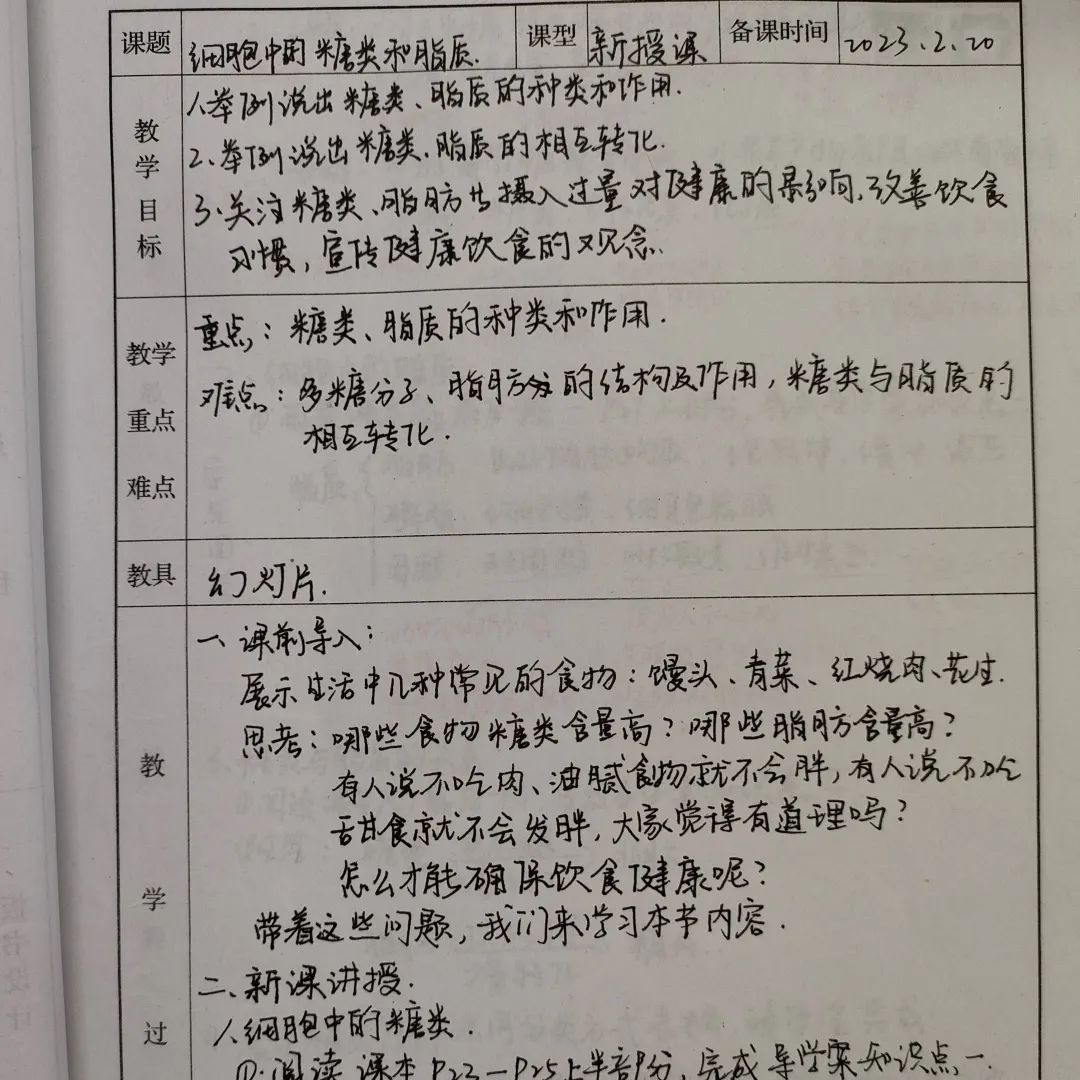 课题 细胞中的糖类和脂质. 课型 新授课 备课时间 2023.2.20
教学目标
1.举例说出糖类、脂质的种类和作用.
2.举例说出糖类.脂质的相互转化.
3.关注糖类、脂肪等摄入过量对健康的影响.改善饮食
习惯,宣传健康饮食的观念.
教学重点难点
重点:糖类、脂质的种类和作用.
难点:多糖分子、脂肪分子的结构及作用,糖类与脂质的
相互转化.
教具 幻灯片.
教学过
一、课前导入:
展示生活中几种常见的食物:馒头、青菜、红烧肉、花生.
思考:哪些食物糖类含量高?哪些脂肪含量高?
有人说不吃肉、油腻食物就不会胖,有人说不吃
甜食就不会发胖,大家觉得有道理吗?
怎么才能确保饮食健康呢?
带着这些问题,我们来学习本节内容.
二、新课讲授.
1.细胞中的糖类.
①.阅读课本P23—P25上半部分,完成导学案知识点一.